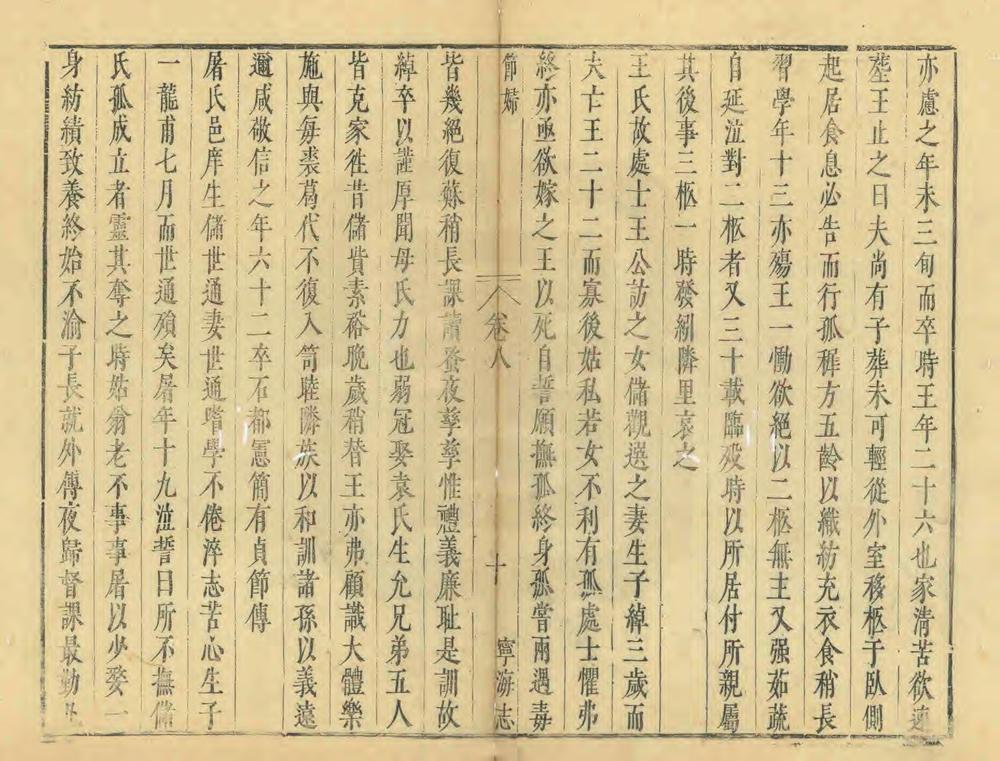 亦慮之年未三旬而卒時王年二十六也家清苦欲速
塟王止之曰夫尚有子葬未可輕從外室移柩于臥側
起居食息必告而行孤穉方五齡以織紡充衣食稍長
習學年十三亦殤王一慟欲絕以二柩無主又强茹蔬
自延泣對二柩者又三十載臨歿時以所居付所親屬
其後事三柩一時發紖隣里哀之
王氏故處士王公訪之女儲觀選之妻生子綽三歲而
夫亡王二十二而寡後姑私若女不利有孤處士懼弗
終亦亟欲嫁之王以死自誓願撫孤終身孤嘗兩遇毒
節婦
卷八
十
寧海志
皆幾絕復蘇稍長課讀蚤夜孳孳惟禮義廉耻是訓故
綽卒以謹厚聞母氏力也弱冠娶袁氏生允兄弟五人
皆克家徃昔儲貲素裕晚歲稍替王亦弗顧識大體樂
施與每裘葛代不復入笥睦隣族以和訓諸孫以義遠
邇咸敬信之年六十二卒石都憲簡有貞節傳
屠氏邑庠生儲世通妻世通嗜學不倦淬志苦心生子
一龍甫七月而世通殞矣屠年十九泣誓曰所不撫儲
氏孤成立者靈其奪之時姑翁老不事事屠以少嫠一
身紡績致養終始不渝子長就外傳夜歸督課最勤